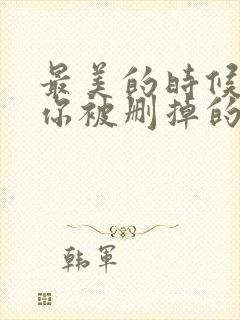 最美的时候
你被删掉的
韩军